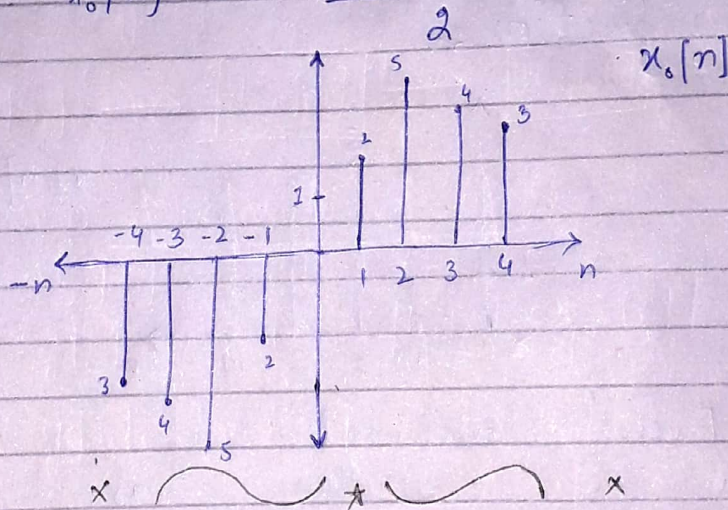 2
x₀[n]
5
4
3
2
1
-4 -3 -2 -1
-n
1 2 3 4 n
2
3
4
5